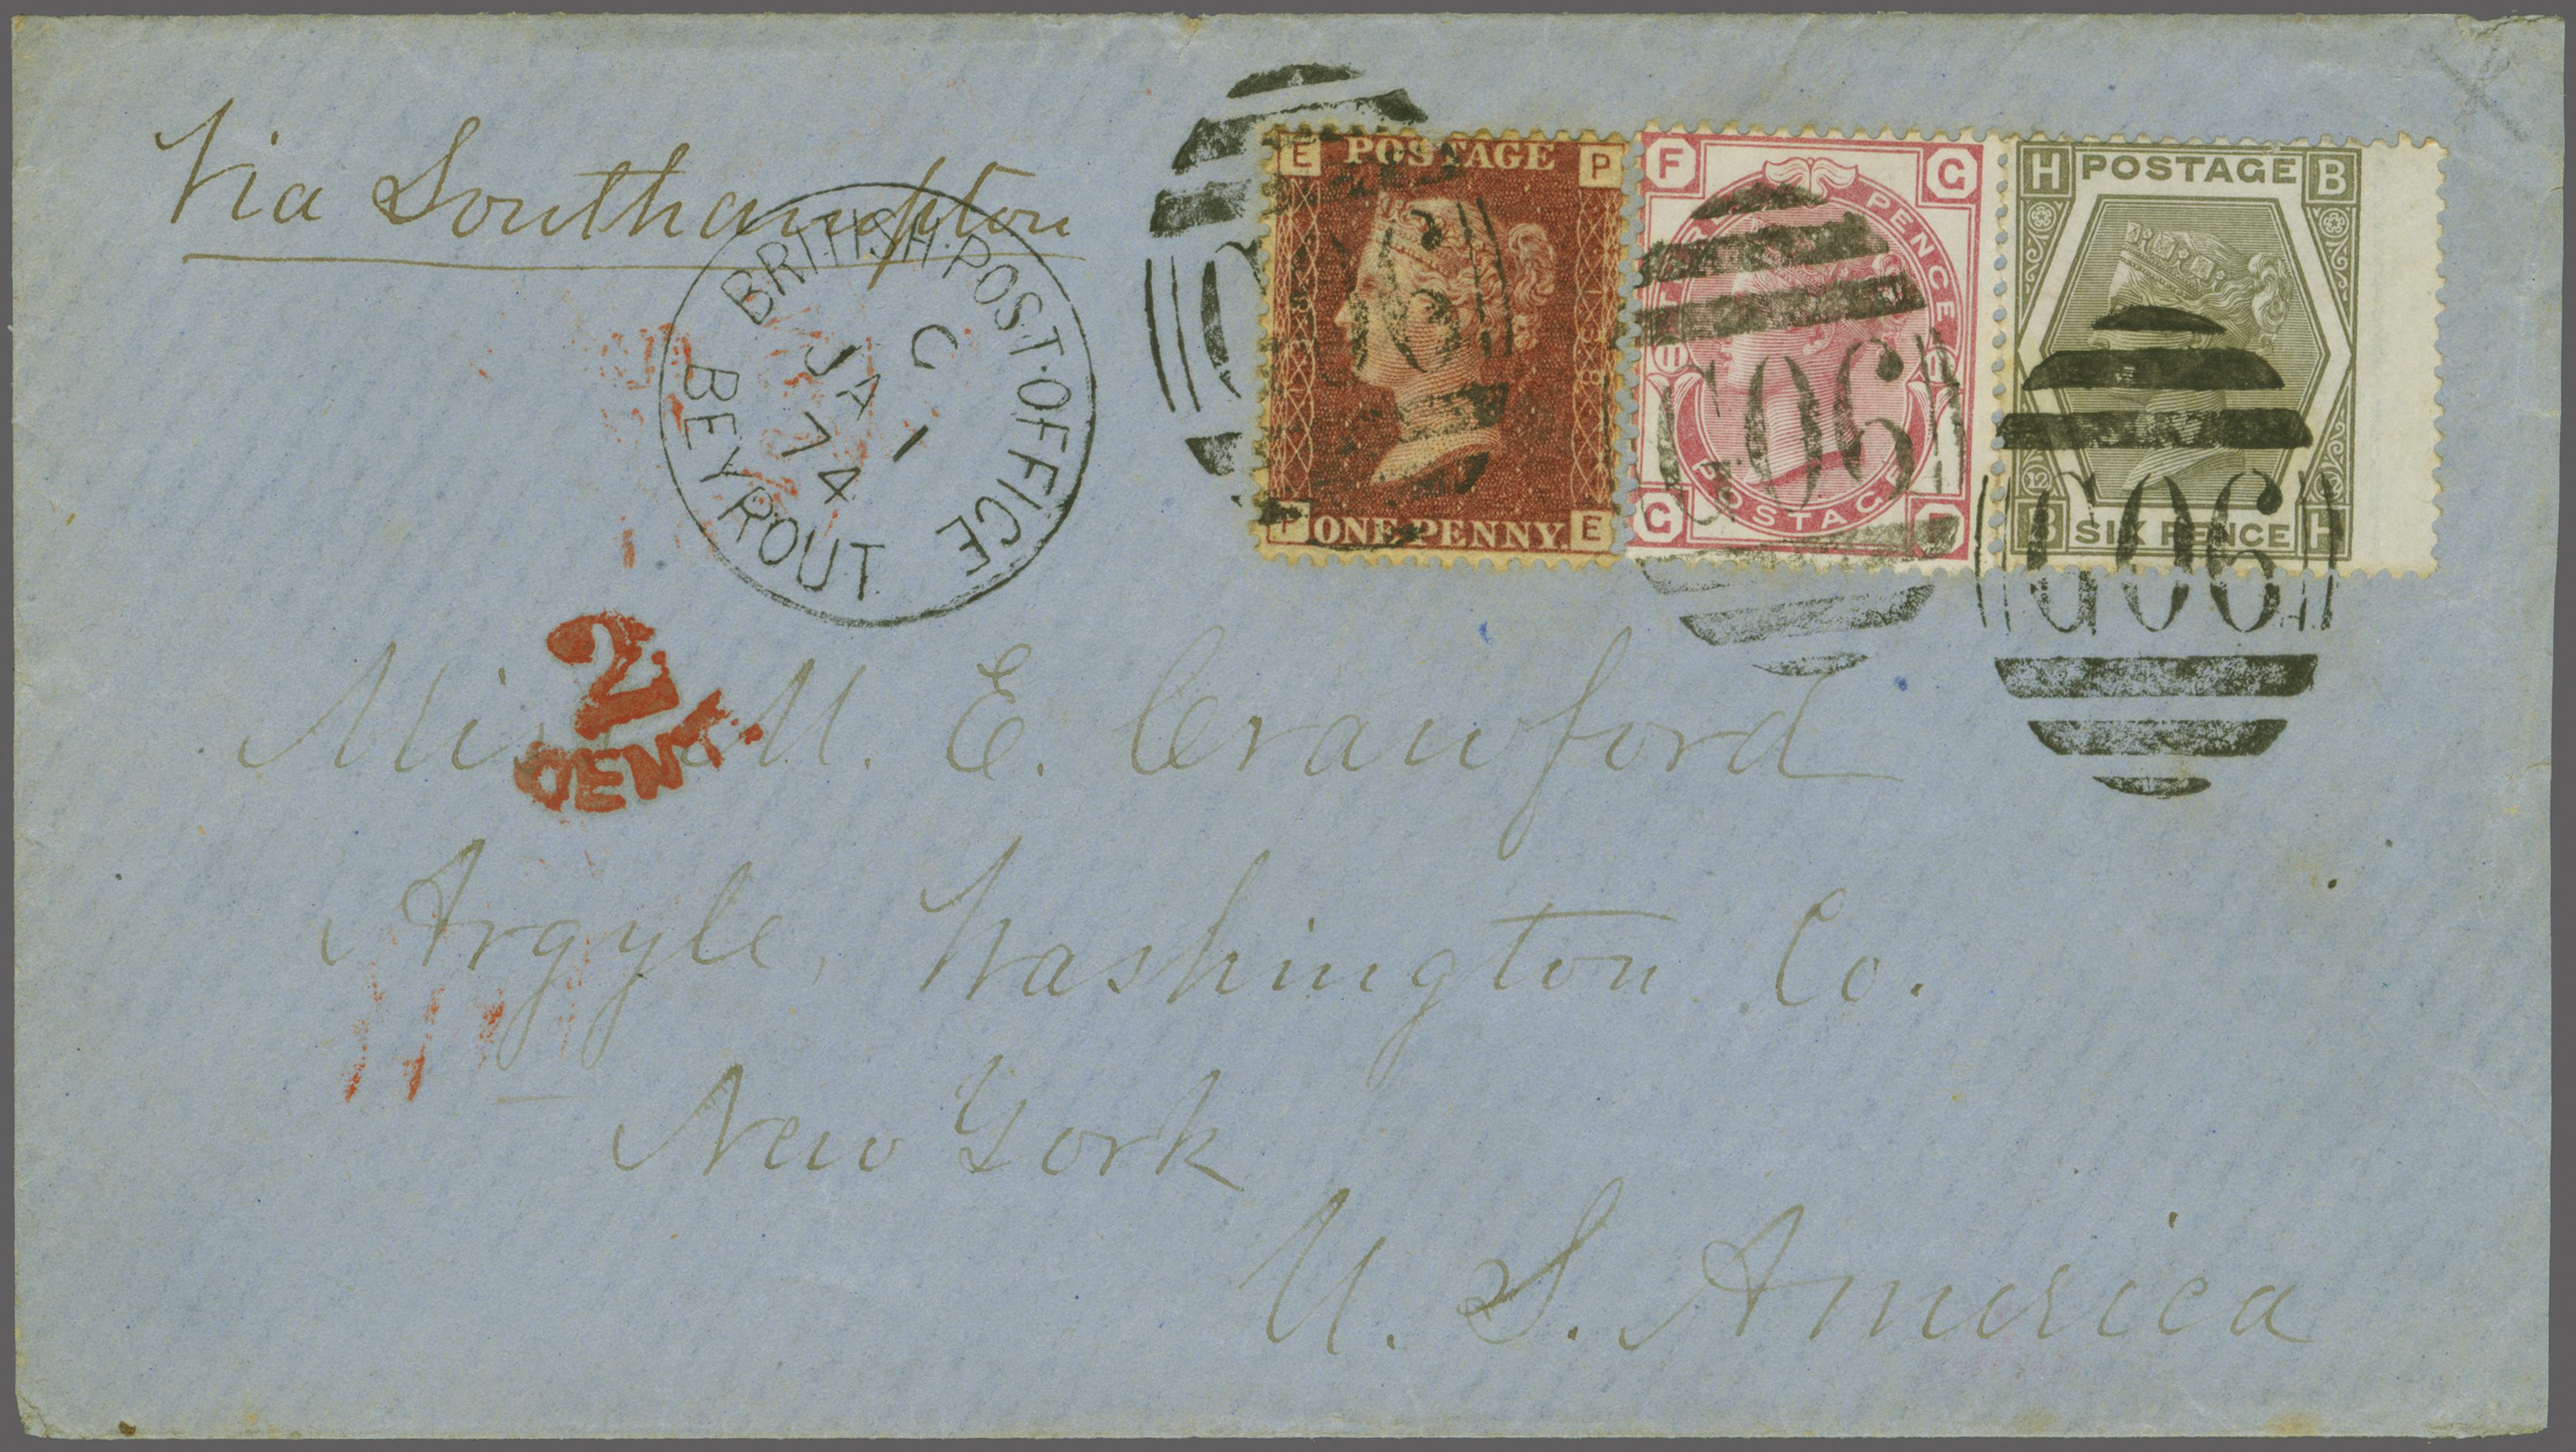 Via Southampton
BRITISH·POST·OFFICE
BEYROUT
C
JA 1
74
E POSTAGE P
P ONE PENNY. E
F G
PENCE
11 11
POSTAG
G F
H POSTAGE B
12 12
B SIX PENCE H
G06
G06
2
CENT.
Miss M. E. Crawford
Argyle, Washington Co.
New York
U. S. America